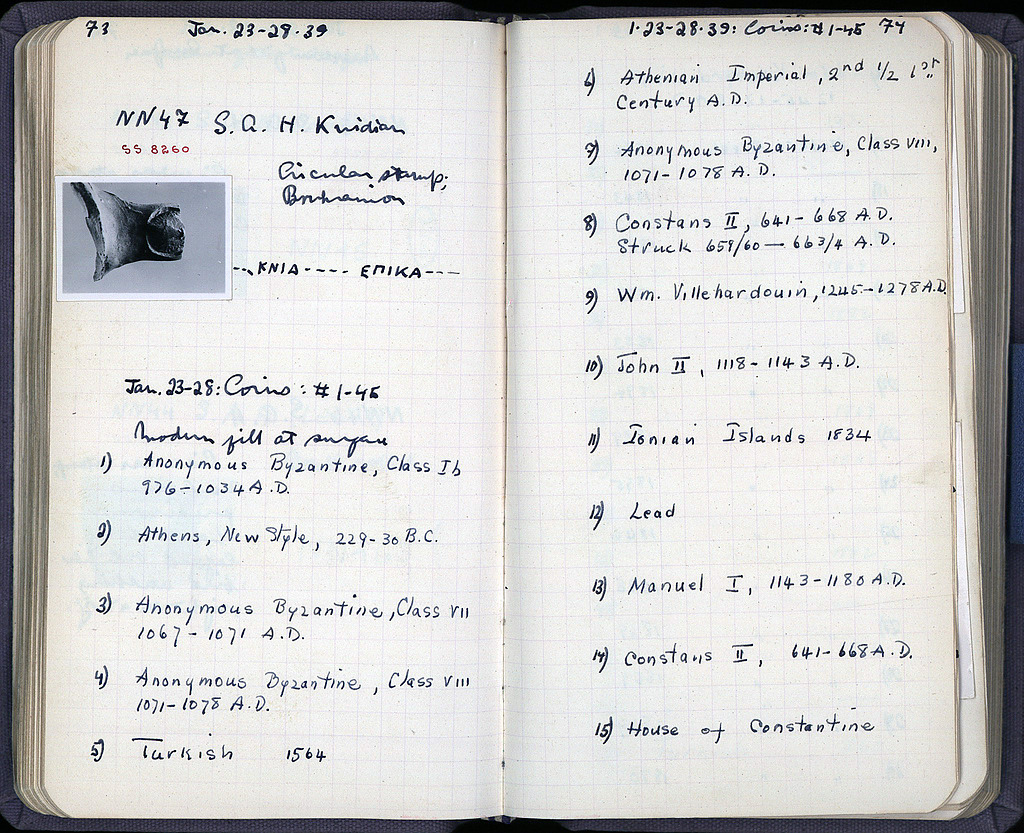 73 Jan. 23-28-39
NN47 S.A.H. Knidian
SS 8260
Circular stamp;
--.KNIA---- ΕΠΙΚΑ---
Jan. 23-28: Coins: #1-45
Modern fill at surface
1) Anonymous Byzantine, Class Ib
976-1034 A.D.
2) Athens, New Style, 229-30 B.C.
3) Anonymous Byzantine, Class VII
1067-1071 A.D.
4) Anonymous Byzantine, Class VIII
1071-1078 A.D.
5) Turkish 1564
1-23-28-39: Coins: #1-45 74
6) Athenian Imperial, 2nd 1/2 1st
Century A.D.
7) Anonymous Byzantine, Class VIII,
1071-1078 A.D.
8) Constans II, 641-668 A.D.
Struck 659/60-663/4 A.D.
9) Wm. Villehardouin, 1245-1278 A.D.
10) John II, 1118-1143 A.D.
11) Ionian Islands 1834
12) Lead
13) Manuel I, 1143-1180 A.D.
14) Constans II, 641-668 A.D.
15) House of Constantine